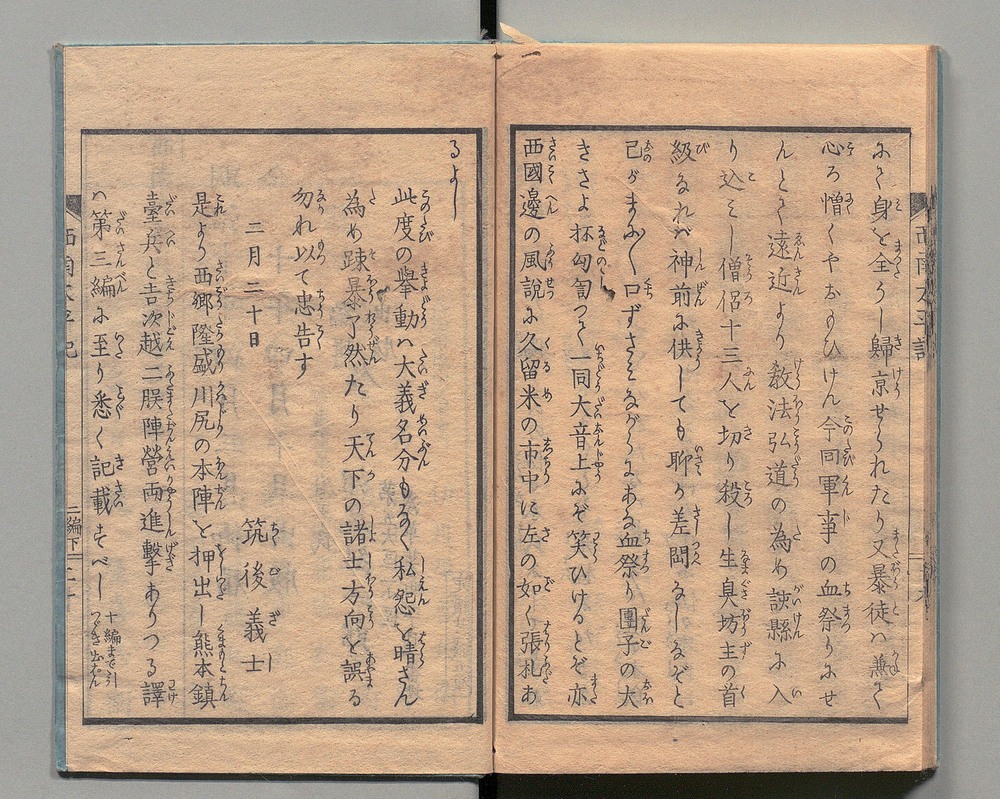 ふく身を全うし歸京せられたり又暴徒ハ兼て
心ろ憎くやおもひけん今回軍事の血祭りにせ
んとく遠近より教法弘道の為め該縣に入
り込ミし僧侶十三人を切り殺し生臭坊主の首
級なれバ神前に供しても聊か差閊なしなぞと
己がまゝ口ずさミながらにある血祭り團子の大
きさよ抔匂つく一同大音上にぞ笑ひけるとぞ亦
西國邊の風說に久留米の市中に左の如く張札あ
るよし
此度の擧動ハ大義名分もなく私怨を晴さん
為め踈暴了然たり天下の諸士方向を誤る
勿れ以て忠告す
二月三十日
筑後義士
是より西郷隆盛川尻の本陣を押出し熊本鎮
臺兵と吉次越二腴陣營両進擊ありつる譯
ハ第三編に至り悉く記載すべし
十編まで引つゞき出はん
西南太平記
二編下